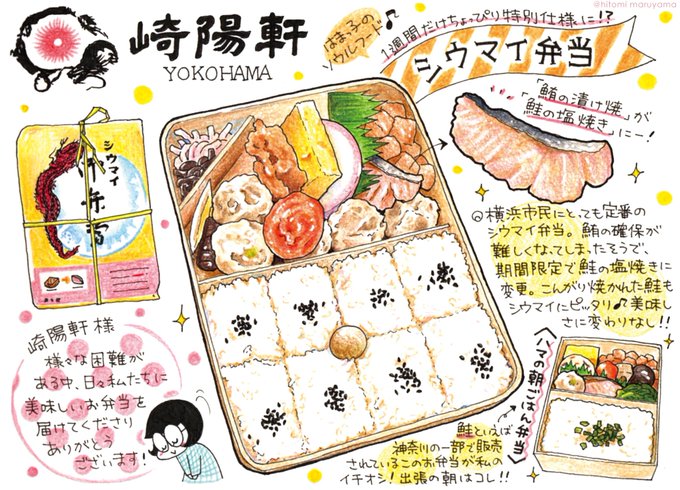 @hitomi maruyama
崎陽軒
YOKOHAMA
はまっ子の
ソウルフード♪
1週間だけちょっぴり特別仕様に!?
シウマイ弁当
「鮪の漬け焼」が
「鮭の塩焼き」にー!
シウマイ
御弁當
横浜市民にとっても定番の
シウマイ弁当。鮪の確保が
難しくなってしまったそうで、
期間限定で鮭の塩焼きに
変更。こんがり焼かれた鮭も
シウマイにピッタリ♪美味し
さに変わりなし!!
崎陽軒 様
様々な困難が
ある中、日々私たちに
美味しいお弁当を
届けてくださり
ありがとう
ございます!
〈ハマの朝ごはん弁当〉
鮭といえば
神奈川の一部で販売
されているこのお弁当が私の
イチオシ!出張の朝はコレ!!